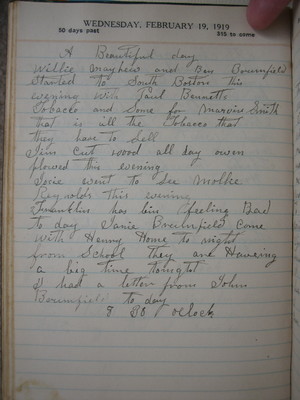 WEDNESDAY, FEBRUARY 19, 1919
50 days past 315 to come
A Beautiful day
Willie Mayhew and Ben Brumfield
Started to South Boston this
evening With Paul Bennetts
Tobaclo and Some for Marvin Smith
that is all the Tobacco that
they have to Sell
Jim Cut wood all day owen
plowed this evening
Josie went to See Mollie
Reynolds this evening
Franklin has bin feeling Bad
to day Janie Brumfield Come
With Henny Home to night
from School they are Haveing
a big time tonight
I had a letter from John
Brumfield to day
8 30 oClock